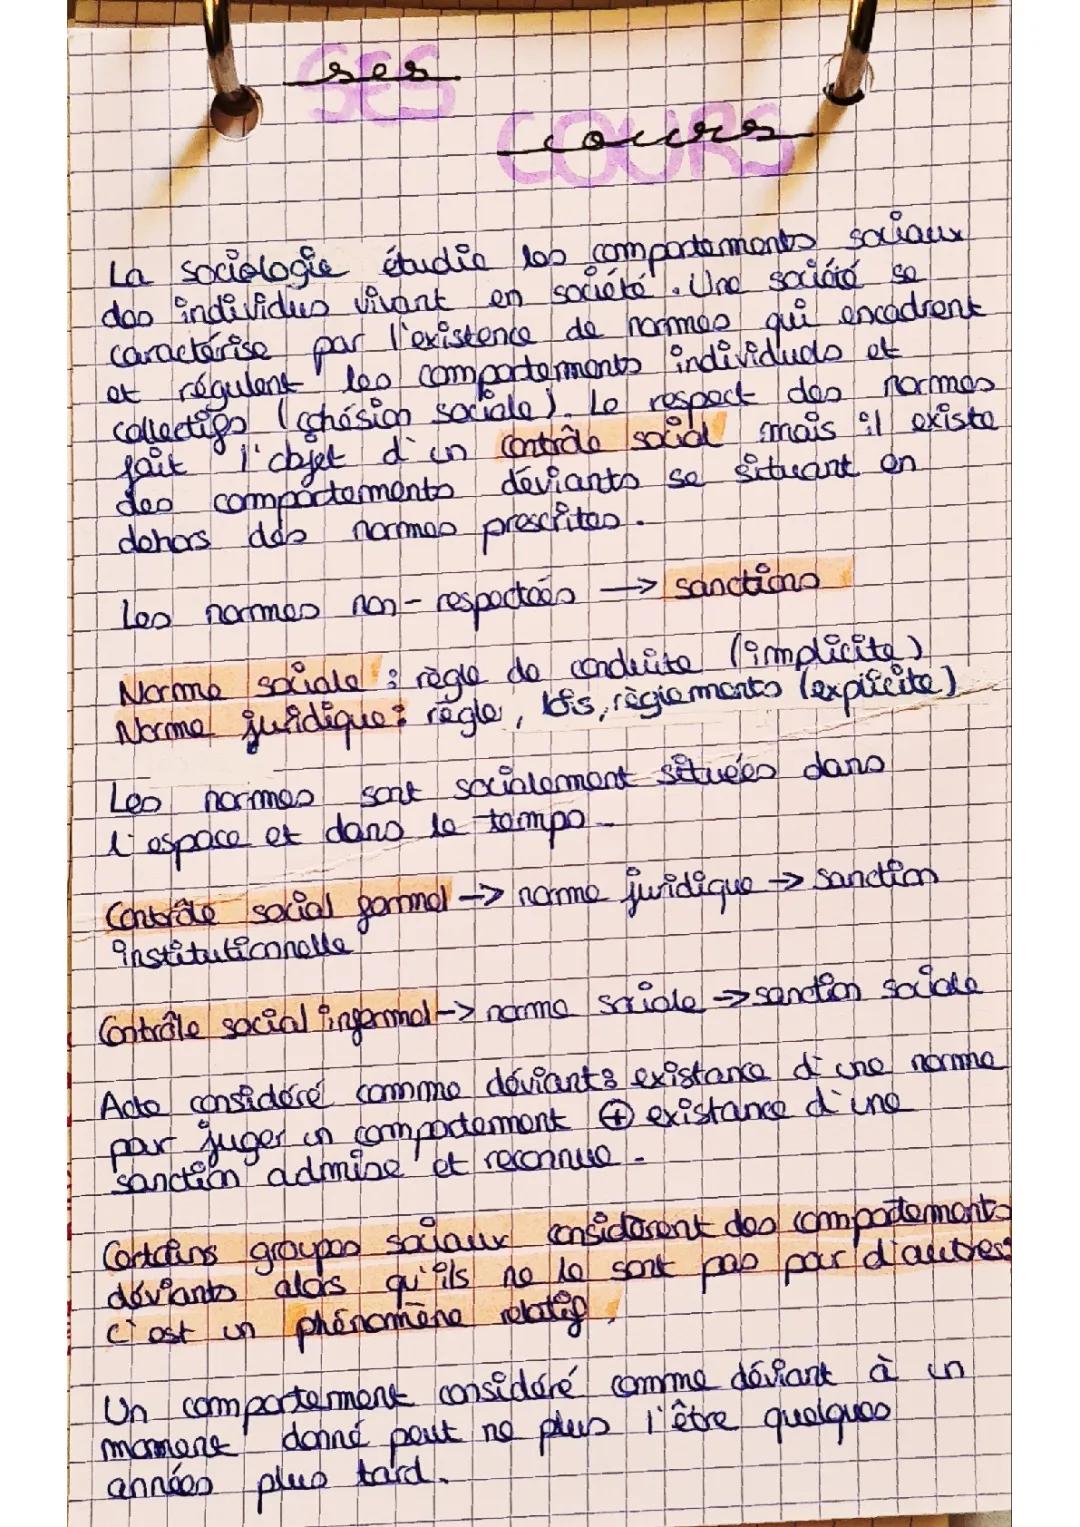 ses
SES
cours
COURS
La sociologie étudie les comportements sociaux
des individus vivant en société. Une société se
caractérise par l'existence de normes qui encadrent
et régulent les comportements individuels et
collectifs (cohésion sociale). Le respect des normes
fait l'objet d'un contrôle social mais il existe
des comportements déviants se situant en
dehors des normes prescrites.
Les normes non-respectées → sanctions
Norme sociale : règle de conduite (implicite)
Norme juridique : règle, lois, règlements (explicite)
Les normes sont socialement situées dans
l'espace et dans le temps.
Contrôle social formel → norme juridique → sanction
institutionnelle
Contrôle social informel → norme sociale → sanction sociale
Acte considéré comme déviant : existance d'une norme
pour juger un comportement ⊕ existance d'une
sanction admise et reconnue.
Certains groupes sociaux considèrent des comportements
déviants alors qu'ils ne le sont pas pour d'autres :
c'est un phénomène relatif.
Un comportement considéré comme déviant à un
moment donné peut ne plus l'être quelques
années plus tard.